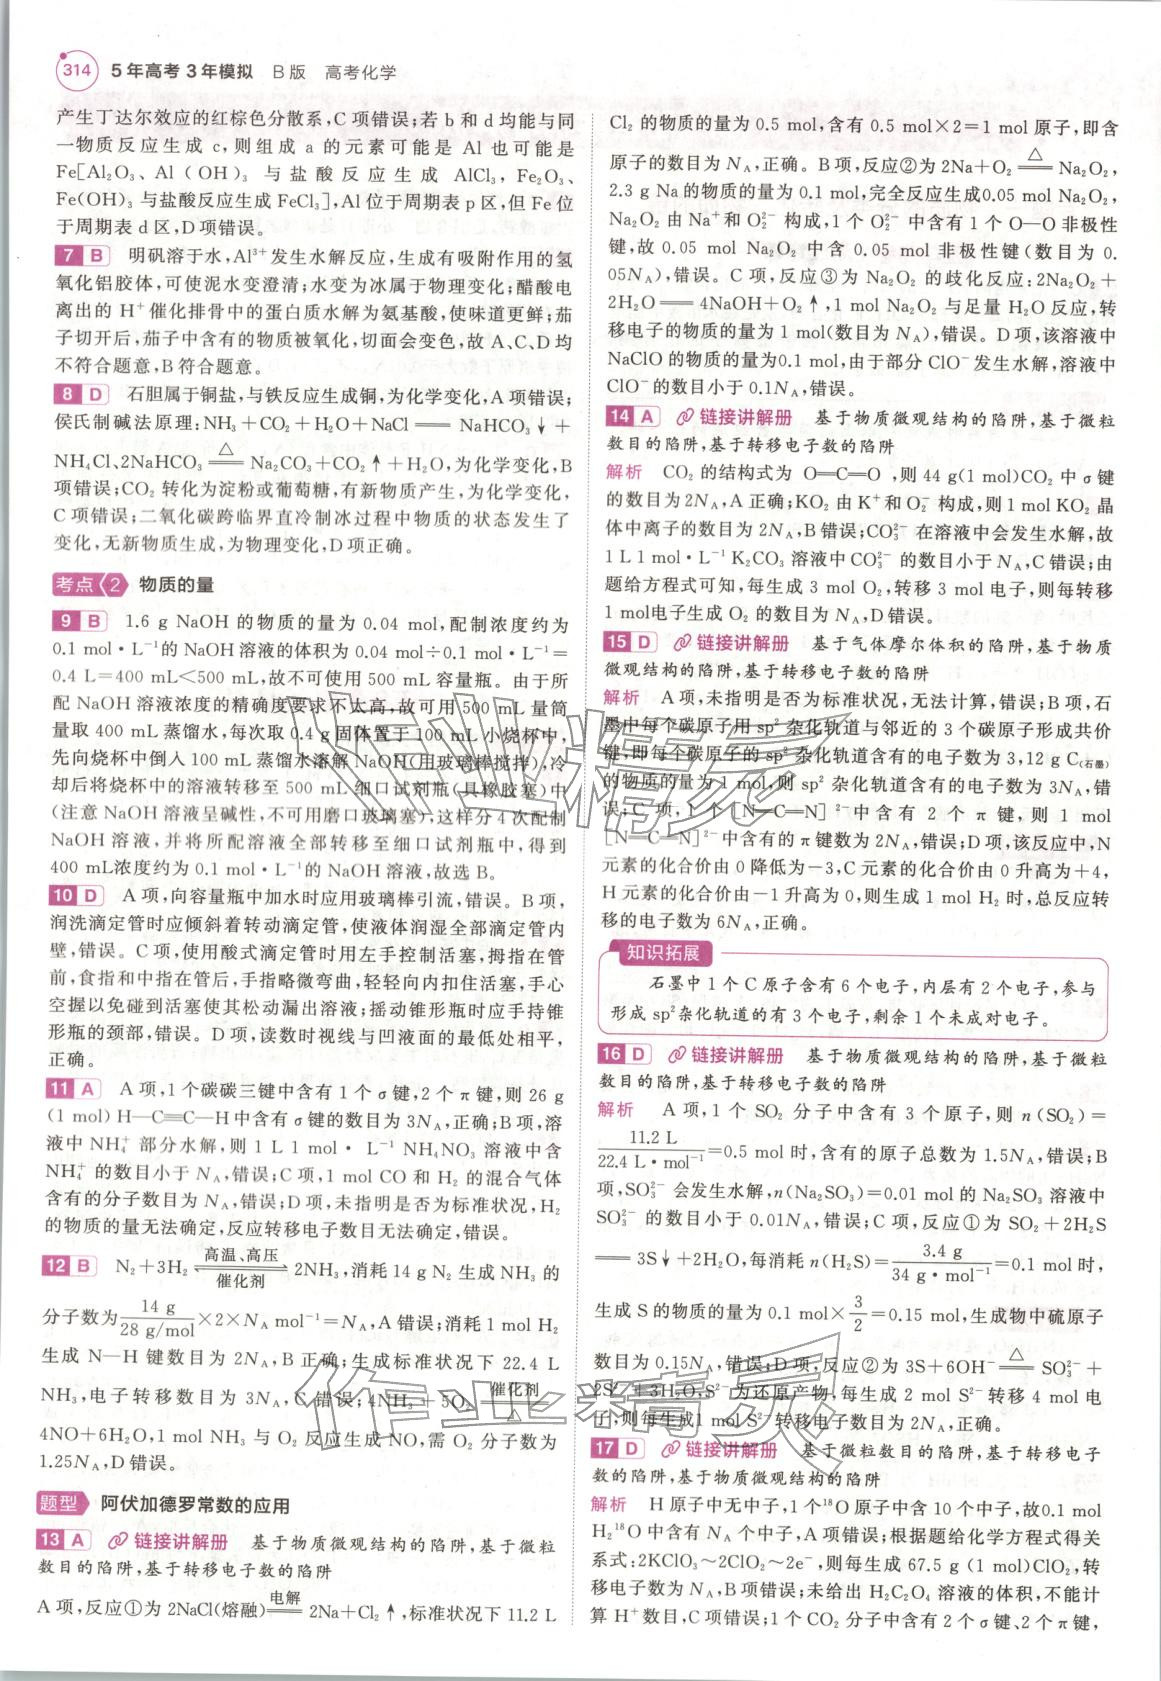 314 5年高考3年模拟 B版 高考化学
产生丁达尔效应的红棕色分散系,C项错误;若b和d均能与同
一物质反应生成c,则组成a的元素可能是Al也可能是
Fe[Al₂O₃、Al(OH)₃与盐酸反应生成AlCl₃,Fe₂O₃、
Fe(OH)₃与盐酸反应生成FeCl₃],Al位于周期表p区,但Fe位
于周期表d区,D项错误。
7 B 明矾溶于水,Al³⁺发生水解反应,生成有吸附作用的氢
氧化铝胶体,可使泥水变澄清;水变为冰属于物理变化;醋酸电
离出的H⁺催化排骨中的蛋白质水解为氨基酸,使味道更鲜;茄
子切开后,茄子中含有的物质被氧化,切面会变色,故A、C、D均
不符合题意,B符合题意。
8 D 石胆属于铜盐,与铁反应生成铜,为化学变化,A项错误;
侯氏制碱法原理:NH₃+CO₂+H₂O+NaCl══NaHCO₃↓+
NH₄Cl、2NaHCO₃ ══(△) Na₂CO₃+CO₂↑+H₂O,为化学变化,B
项错误;CO₂转化为淀粉或葡萄糖,有新物质产生,为化学变化,
C项错误;二氧化碳跨临界直冷制冰过程中物质的状态发生了
变化,无新物质生成,为物理变化,D项正确。
考点2 物质的量
9 B 1.6 g NaOH的物质的量为0.04 mol,配制浓度约为
0.1 mol·L⁻¹的NaOH溶液的体积为0.04 mol÷0.1 mol·L⁻¹=
0.4 L=400 mL<500 mL,故不可使用500 mL容量瓶。由于所
配NaOH溶液浓度的精确度要求不太高,故可用500 mL量筒
量取400 mL蒸馏水,每次取0.4 g固体置于100 mL小烧杯中,
先向烧杯中倒入100 mL蒸馏水溶解NaOH(用玻璃棒搅拌),冷
却后将烧杯中的溶液转移至500 mL细口试剂瓶(具橡胶塞)中
(注意NaOH溶液呈碱性,不可用磨口玻璃塞),这样分4次配制
NaOH溶液,并将所配溶液全部转移至细口试剂瓶中,得到
400 mL浓度约为0.1 mol·L⁻¹的NaOH溶液,故选B。
10 D A项,向容量瓶中加水时应用玻璃棒引流,错误。B项,
润洗滴定管时应倾斜着转动滴定管,使液体润湿全部滴定管内
壁,错误。C项,使用酸式滴定管时用左手控制活塞,拇指在管
前,食指和中指在管后,手指略微弯曲,轻轻向内扣住活塞,手心
空握以免碰到活塞使其松动漏出溶液;摇动锥形瓶时应手持锥
形瓶的颈部,错误。D项,读数时视线与凹液面的最低处相平,
正确。
11 A A项,1个碳碳三键中含有1个σ键,2个π键,则26 g
(1 mol)H—C≡C—H中含有σ键的数目为3Nᴀ,正确;B项,溶
液中NH₄⁺部分水解,则1 L 1 mol·L⁻¹ NH₄NO₃溶液中含
NH₄⁺的数目小于Nᴀ,错误;C项,1 mol CO和H₂的混合气体
含有的分子数为Nᴀ,错误;D项,未指明是否为标准状况,H₂
的物质的量无法确定,反应转移电子数目无法确定,错误。
12 B N₂+3H₂ ⇌(高温、高压/催化剂) 2NH₃,消耗14 g N₂生成NH₃的
分子数为 14 g/28 g/mol ×2×Nᴀ mol⁻¹=Nᴀ,A错误;消耗1 mol H₂
生成N—H键数目为2Nᴀ,B正确;生成标准状况下22.4 L
NH₃,电子转移数目为3Nᴀ,C错误;4NH₃+5O₂ ══(催化剂/△)
4NO+6H₂O,1 mol NH₃与O₂反应生成NO,需O₂分子数为
1.25Nᴀ,D错误。
题型 阿伏加德罗常数的应用
13 A 链接讲解册 基于物质微观结构的陷阱,基于微粒
数目的陷阱,基于转移电子数的陷阱
A项,反应①为2NaCl(熔融) ══(电解) 2Na+Cl₂↑,标准状况下11.2 L
Cl₂的物质的量为0.5 mol,含有0.5 mol×2=1 mol原子,即含
原子的数目为Nᴀ,正确。B项,反应②为2Na+O₂ ══(△) Na₂O₂,
2.3 g Na的物质的量为0.1 mol,完全反应生成0.05 mol Na₂O₂,
Na₂O₂由Na⁺和O₂²⁻构成,1个O₂²⁻中含有1个O—O非极性
键,故0.05 mol Na₂O₂中含0.05 mol非极性键(数目为0.
05Nᴀ),错误。C项,反应③为Na₂O₂的歧化反应:2Na₂O₂+
2H₂O══4NaOH+O₂↑,1 mol Na₂O₂与足量H₂O反应,转
移电子的物质的量为1 mol(数目为Nᴀ),错误。D项,该溶液中
NaClO的物质的量为0.1 mol,由于部分ClO⁻发生水解,溶液中
ClO⁻的数目小于0.1Nᴀ,错误。
14 A 链接讲解册 基于物质微观结构的陷阱,基于微粒
数目的陷阱,基于转移电子数的陷阱
解析 CO₂的结构式为O═C═O,则44 g(1 mol)CO₂中σ键
的数目为2Nᴀ,A正确;KO₂由K⁺和O₂⁻构成,则1 mol KO₂晶
体中离子的数目为2Nᴀ,B错误;CO₃²⁻在溶液中会发生水解,故
1 L 1 mol·L⁻¹ K₂CO₃溶液中CO₃²⁻的数目小于Nᴀ,C错误;由
题给方程式可知,每生成3 mol O₂,转移3 mol电子,则每转移
1 mol电子生成O₂的数目为Nᴀ,D错误。
15 D 链接讲解册 基于气体摩尔体积的陷阱,基于物质
微观结构的陷阱,基于转移电子数的陷阱
解析 A项,未指明是否为标准状况,无法计算,错误;B项,石
墨中每个碳原子用sp²杂化轨道与邻近的3个碳原子形成共价
键,即每个碳原子的sp²杂化轨道含有的电子数为3,12 g C(石墨)
的物质的量为1 mol,则sp²杂化轨道含有的电子数为3Nᴀ,错
误;C项,1个[N═C═N]²⁻中含有2个π键,则1 mol
[N═C═N]²⁻中含有的π键数为2Nᴀ,错误;D项,该反应中,N
元素的化合价由0降低为-3,C元素的化合价由0升高为+4,
H元素的化合价由-1升高为0,则生成1 mol H₂时,总反应转
移的电子数为6Nᴀ,正确。
知识拓展
石墨中1个C原子含有6个电子,内层有2个电子,参与
形成sp²杂化轨道的有3个电子,剩余1个未成对电子。
16 D 链接讲解册 基于物质微观结构的陷阱,基于微粒
数目的陷阱,基于转移电子数的陷阱
解析 A项,1个SO₂分子中含有3个原子,则n(SO₂)=
11.2 L/22.4 L·mol⁻¹=0.5 mol时,含有的原子总数为1.5Nᴀ,错误;B
项,SO₃²⁻会发生水解,n(Na₂SO₃)=0.01 mol的Na₂SO₃溶液中
SO₃²⁻的数目小于0.01Nᴀ,错误;C项,反应①为SO₂+2H₂S
══3S↓+2H₂O,每消耗n(H₂S)=3.4 g/34 g·mol⁻¹=0.1 mol时,
生成S的物质的量为0.1 mol×3/2=0.15 mol,生成物中硫原子
数目为0.15Nᴀ,错误;D项,反应②为3S+6OH⁻ ══(△) SO₃²⁻+
2S²⁻+3H₂O,S²⁻为还原产物,每生成2 mol S²⁻转移4 mol电
子,则每生成1 mol S²⁻转移电子数目为2Nᴀ,正确。
17 D 链接讲解册 基于微粒数目的陷阱,基于转移电子
数的陷阱,基于物质微观结构的陷阱
解析 H原子中无中子,1个¹⁸O原子中含10个中子,故0.1 mol
H₂¹⁸O中含有Nᴀ个中子,A项错误;根据题给化学方程式得关
系式:2KClO₃~2ClO₂~2e⁻,则每生成67.5 g(1 mol)ClO₂,转
移电子数为Nᴀ,B项错误;未给出H₂C₂O₄溶液的体积,不能计
算H⁺数目,C项错误;1个CO₂分子中含有2个σ键、2个π键,
作业精灵
作业精灵